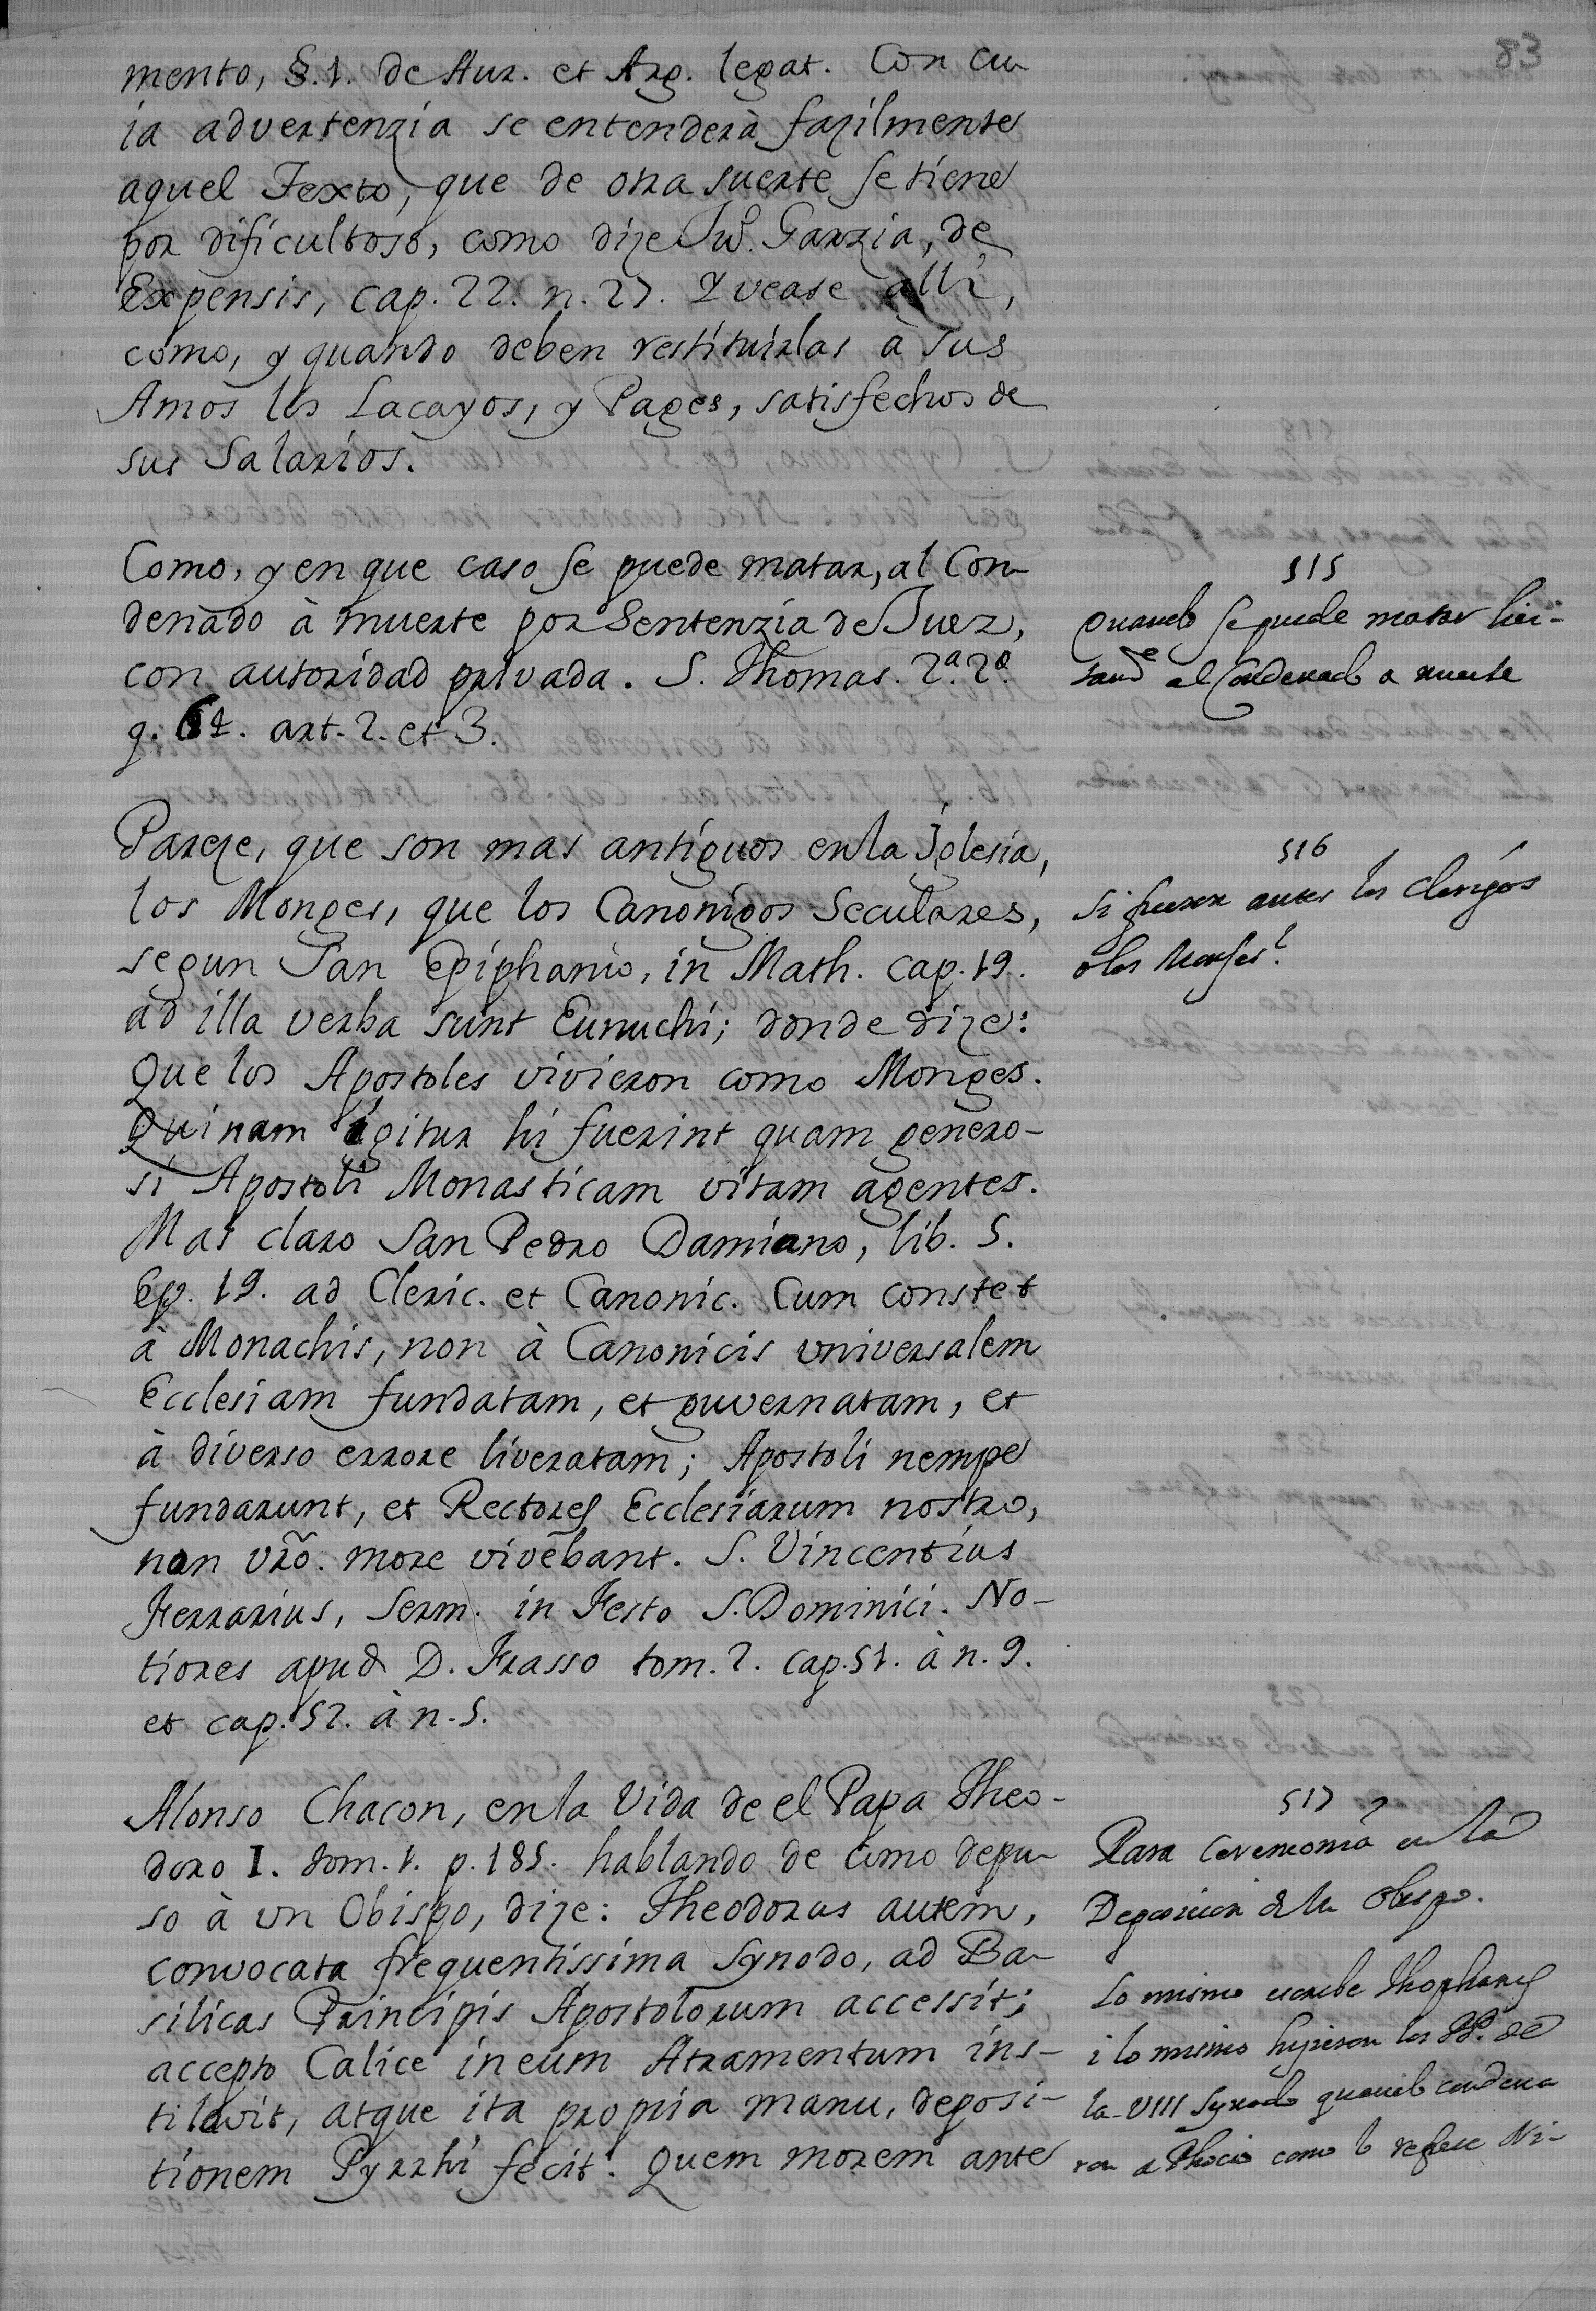 83
mento, §.1. de Aur. et Arg. legat. Con cu
ia advertenzia se entenderà fazilmente
aquel Texto, que de otra suerte se tiene
por dificultoso, como dize Ju.º Garzia, de
Expensis, cap. 22. n. 27. Y vease alli,
como, y quando deben restituirlas à sus
Amos los Lacayos, y Pages, satisfechos de
sus Salarios.
Como, y en que caso se puede matar, al Con-
denado à muerte por Sentenzia de Juez,
con autoridad privada. S. Thomas. 2.ª 2.ª
q. 64. art. 2. et 3.
515
Quando se puede matar lici-
tamᵉ al Condenado a muerte
Pareze, que son mas antiguos en la Iglesia,
los Monges, que los Canonigos Seculares,
segun San Epiphanio, in Math. cap. 19.
ad illa verba sunt Eunuchi; donde dize:
Que los Apostoles vivieron como Monges.
Quinam igitur hi fuerint quam genero-
si Apostoli Monasticam vitam agentes.
Mas claro San Pedro Damiano, lib. 5.
Ep. 19. ad Cleric. et Canonic. Cum constet
à Monachis, non à Canonicis universalem
Ecclesiam fundatam, et guvernatam, et
à diverso errore liveratam; Apostoli nempe
fundarunt, et Rectores Ecclesiarum nostro,
non vr̃o. more vivebant. S. Vincentius
Ferrarius, Serm. in Festo S. Dominici. No-
tiores apud D. Frasso tom. 2. cap. 51. à n. 9.
et cap. 52. à n. 5.
516
Si fueron antes los Clerigos
o los Monjes?
Alonso Chacon, en la Vida de el Papa Theo-
doro I. tom. 1. p. 185. hablando de como depu-
so à un Obispo, dize: Theodorus autem,
convocata frequentissima Synodo, ad Ba-
silicas Principis Apostolorum accessit;
accepto Calice in eum Atramentum ins-
tilavit, atque ita propria manu, deposi-
tionem Pyrrhi fecit. Quem morem ante
517
Rara Ceremonia en la
Deposicion de un Obispo.
Lo mismo escribe Thophanes
i lo mismo hizieron los PP. de
la VIII Synodo quando condena
ron a Phocio como lo refiere Ni-